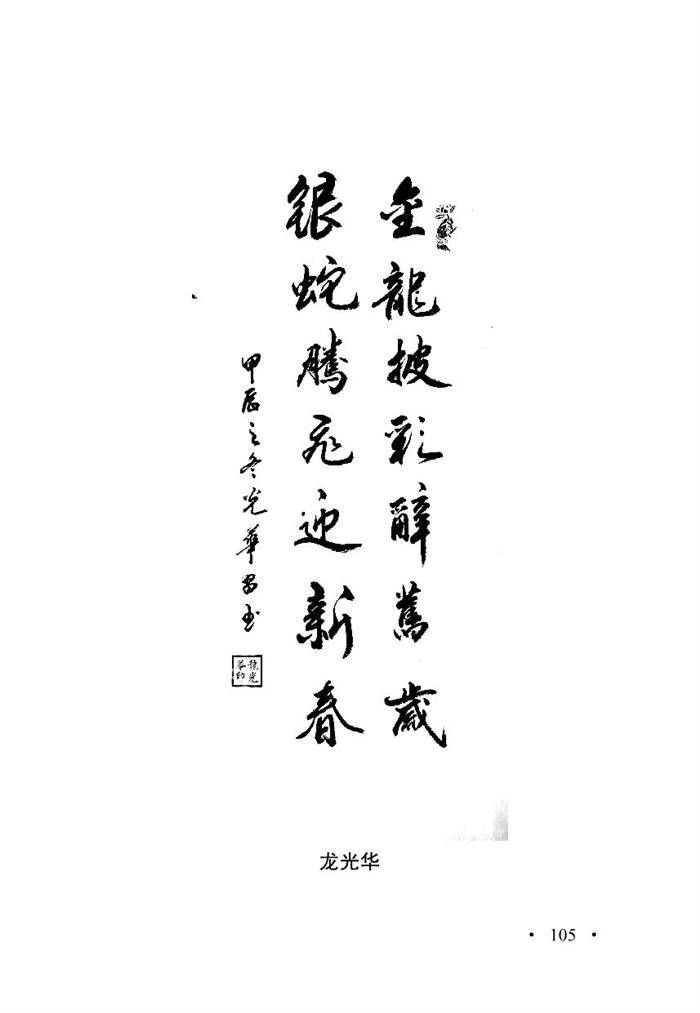 金龍披彩辭舊歲
銀蛇騰飛迎新春
甲辰之冬光華
龍光華印
龙光华
· 105 ·